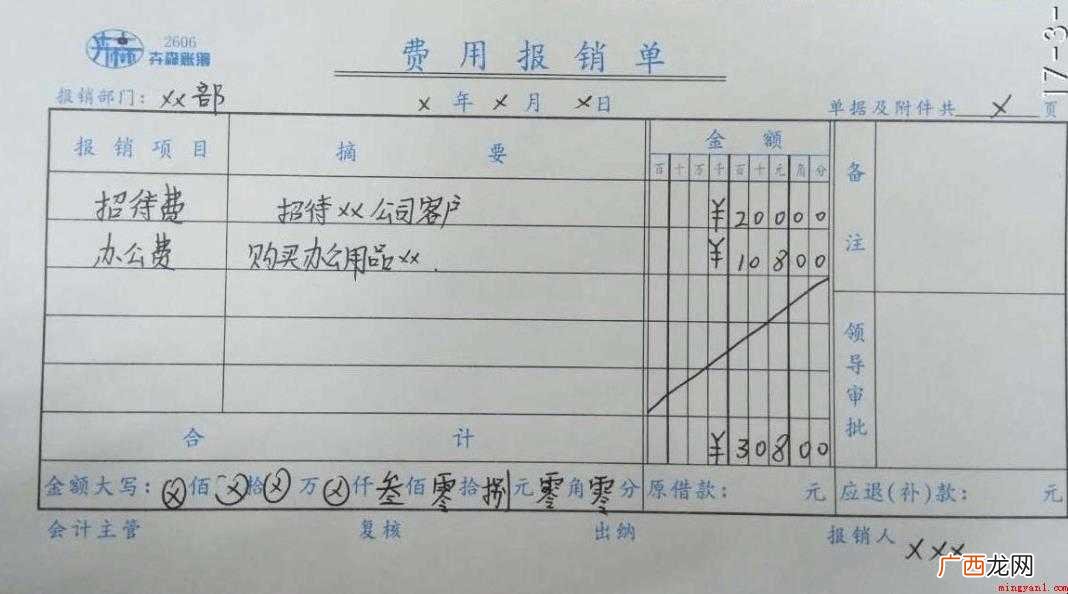 2606
卉森账簿
费用报销单
17-3-
报销部门: xx部 x年x月x日 单据及附件共 x 页
报销项目 摘要 金额 备注
百十万千百十元角分
招待费 招待xx公司客户 ¥20000
办公费 购买办公用品xx. ¥10800
领导审批
合计 ¥30800
金额大写: ⓧ佰ⓧ拾ⓧ万ⓧ仟叁佰零拾捌元零角零分 原借款: 元 应退(补)款: 元
会计主管 复核 出纳 报销人 xxx
广西龙网
mingyan1.com